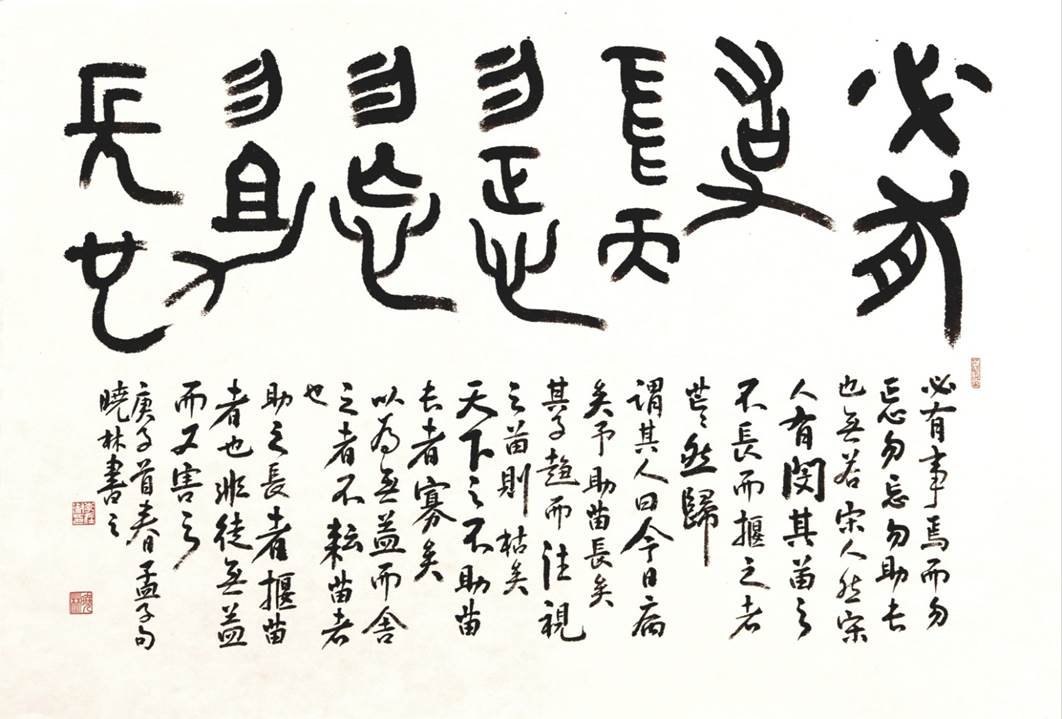 必有
事
焉而
勿正心
勿忘
勿助
長也
必有事焉而勿
正心勿忘勿助长
也無若宋人然宋
人有閔其苗之
不長而揠之者
芒芒然歸
謂其人曰今日病
矣予助苗長矣
其子趨而往視
之苗則枯矣
天下之不助苗
长者寡矣
以為無益而舍
之者不耘苗者
也
助之長者揠苗
者也非徒無益
而又害之
庚子首春日孟子句
曉林書之